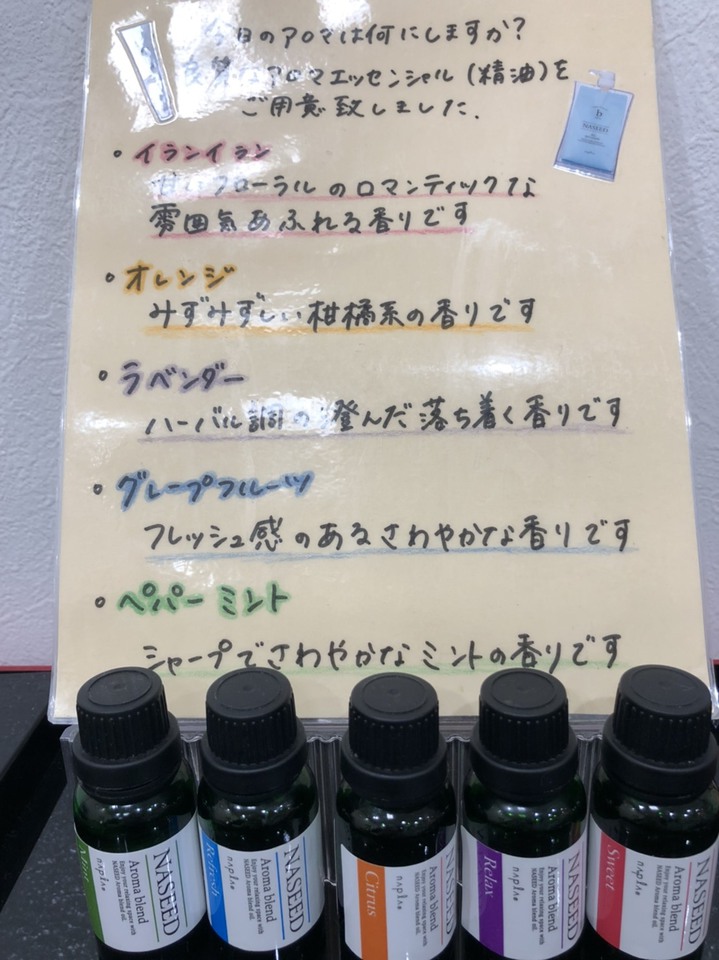 今日のアロマは何にしますか?
アロマエッセンシャル(精油)を
ご用意致しました.
。イランイラン
甘いフローラルのロマンティックな
雰囲気あふれる香りです
。オレンジ
みずみずしい柑橘系の香りです
。ラベンダー
ハーバル調の澄んだ落ち着く香りです
。グレープフルーツ
フレッシュ感のあるさわやかな香りです
。ペパーミント
シャープでさわやかなミントの香りです
NASEED
NASEED
Aroma blend
Enjoy your relaxing space with
NASEED Aroma blend oil.
napla
NASEED
Aroma blend
Enjoy your relaxing space with
NASEED Aroma blend oil.
napla
Refresh
NASEED
Aroma blend
Enjoy your relaxing space with
NASEED Aroma blend oil.
napla
Citrus
NASEED
Aroma blend
Enjoy your relaxing space with
NASEED Aroma blend oil.
napla
Relax
NASEED
Aroma blend
Enjoy your relaxing space with
NASEED Aroma blend oil.
napla
Sweet